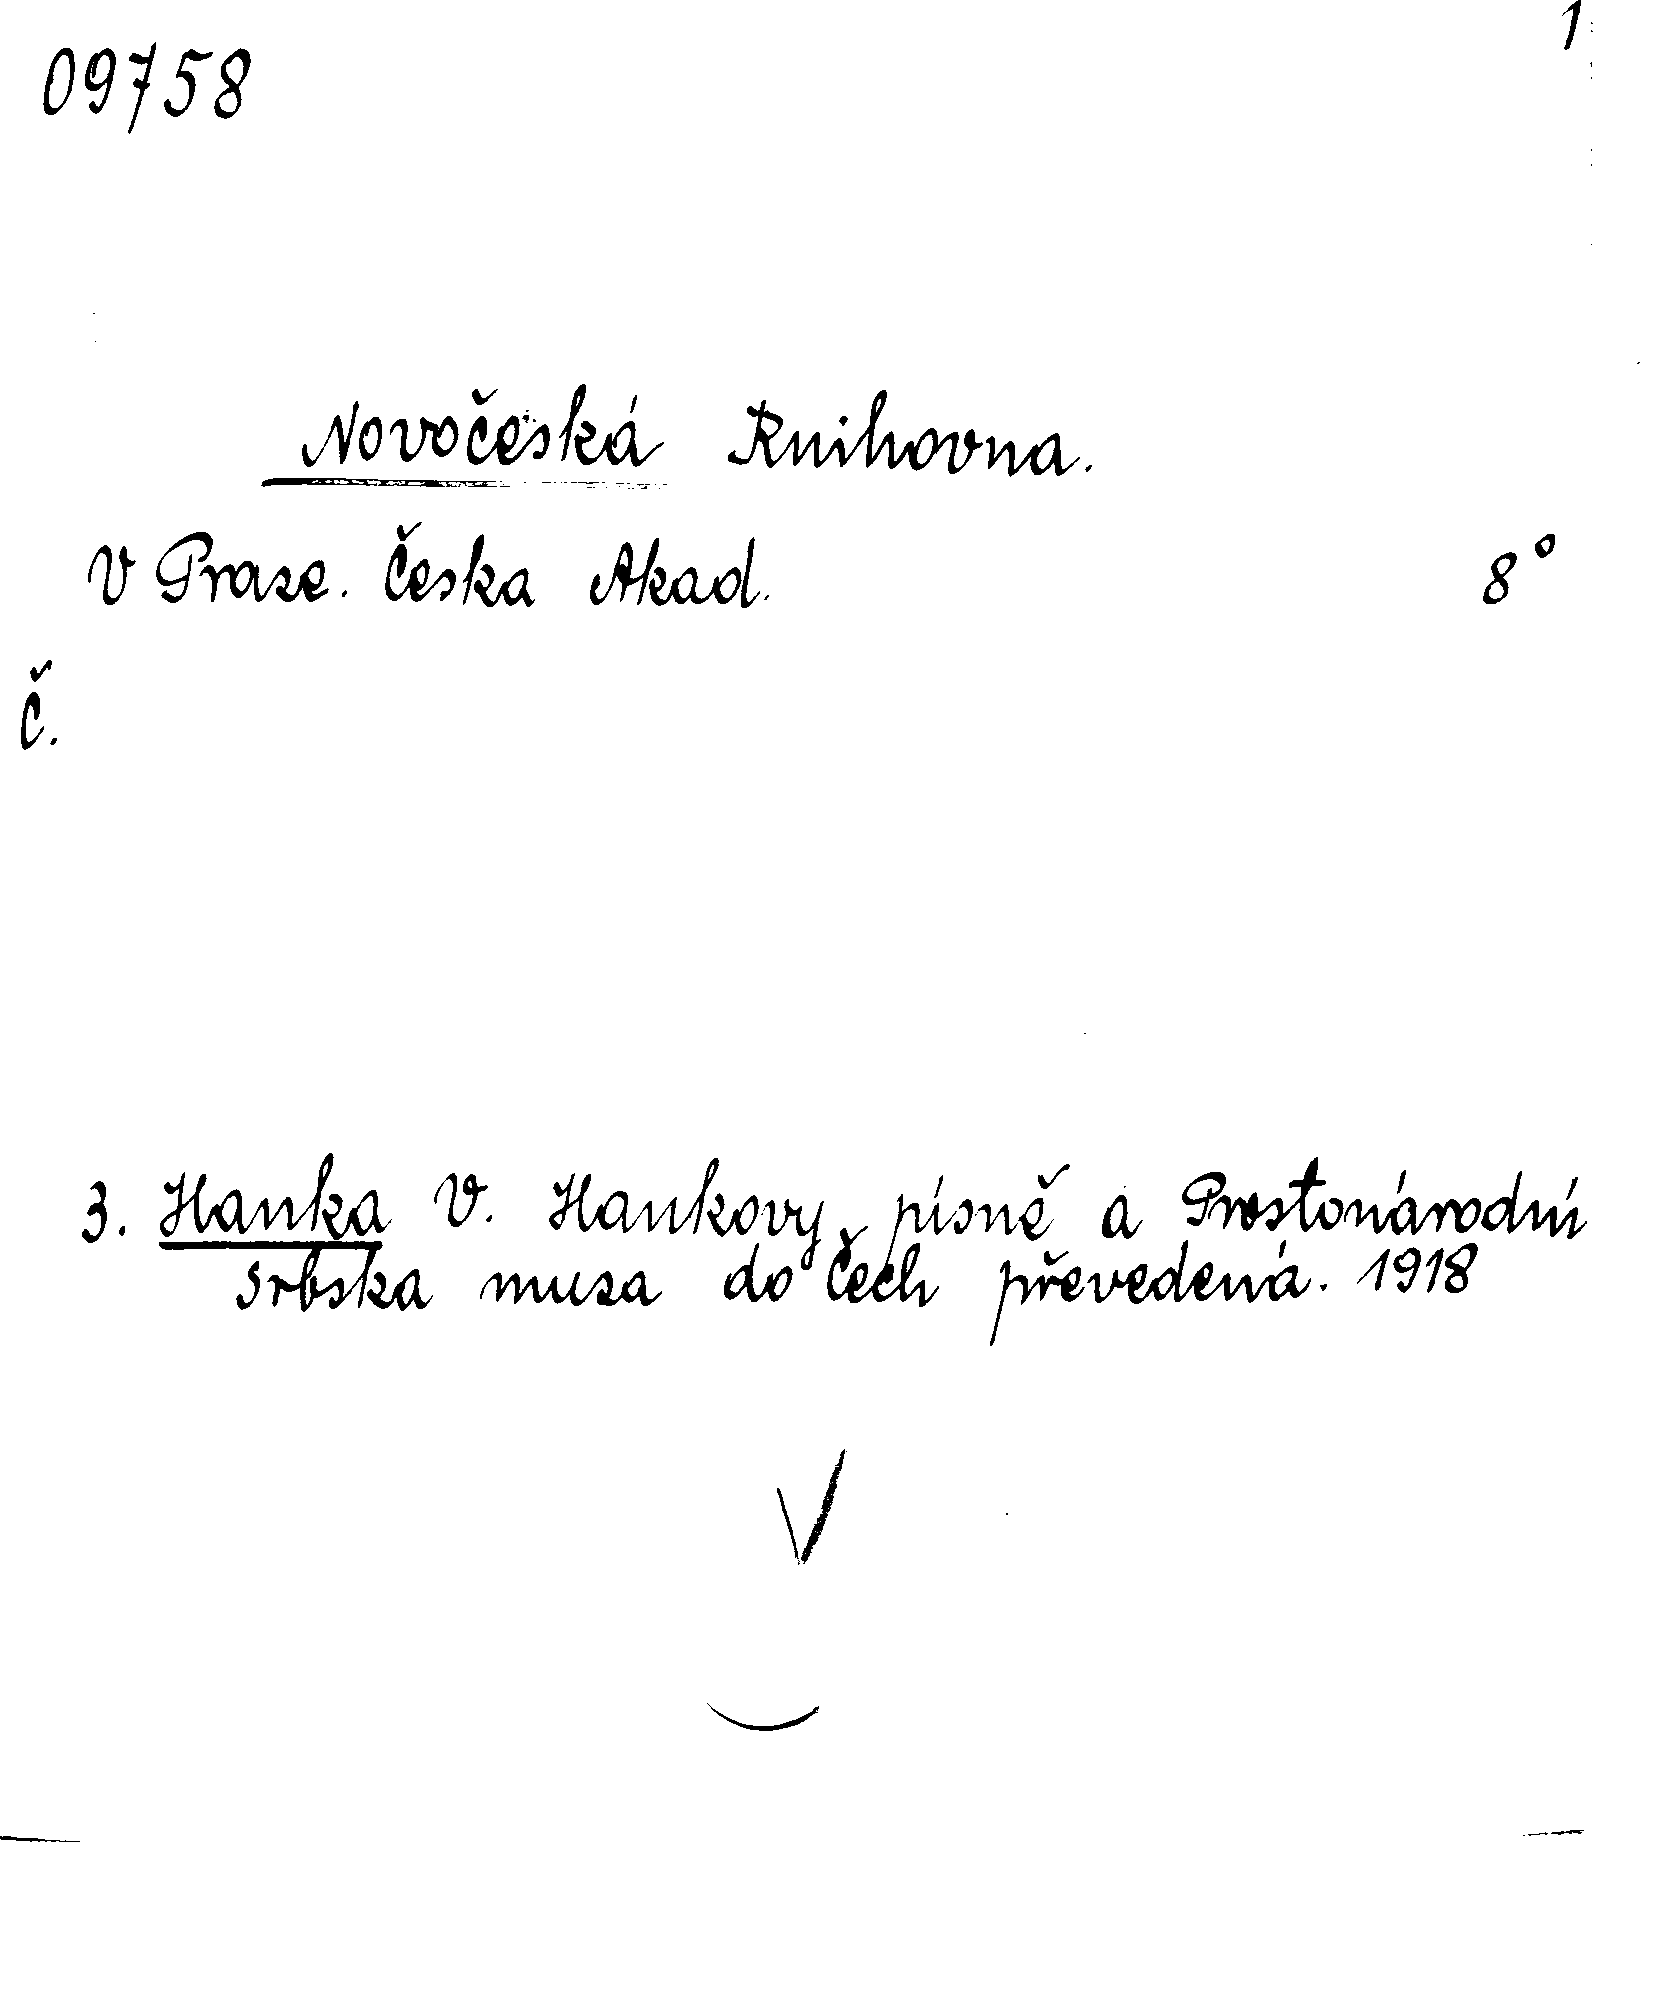 1
09758
Novočeská Knihovna.
V Praze. Česka Akad. 8°
č.
3. Hanka V. Hankovy písně a Prostonárodní
srbska musa do Čech převedená. 1918
V